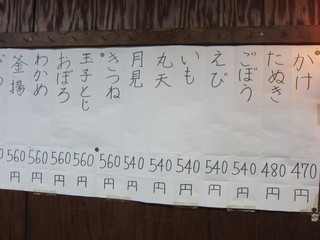 かけ 470円
たぬき 480円
ごぼう 540円
えび 540円
いも 540円
丸天 540円
月見 540円
きつね 560円
玉子とじ 560円
おぼろ 560円
わかめ 560円
釜揚 560円